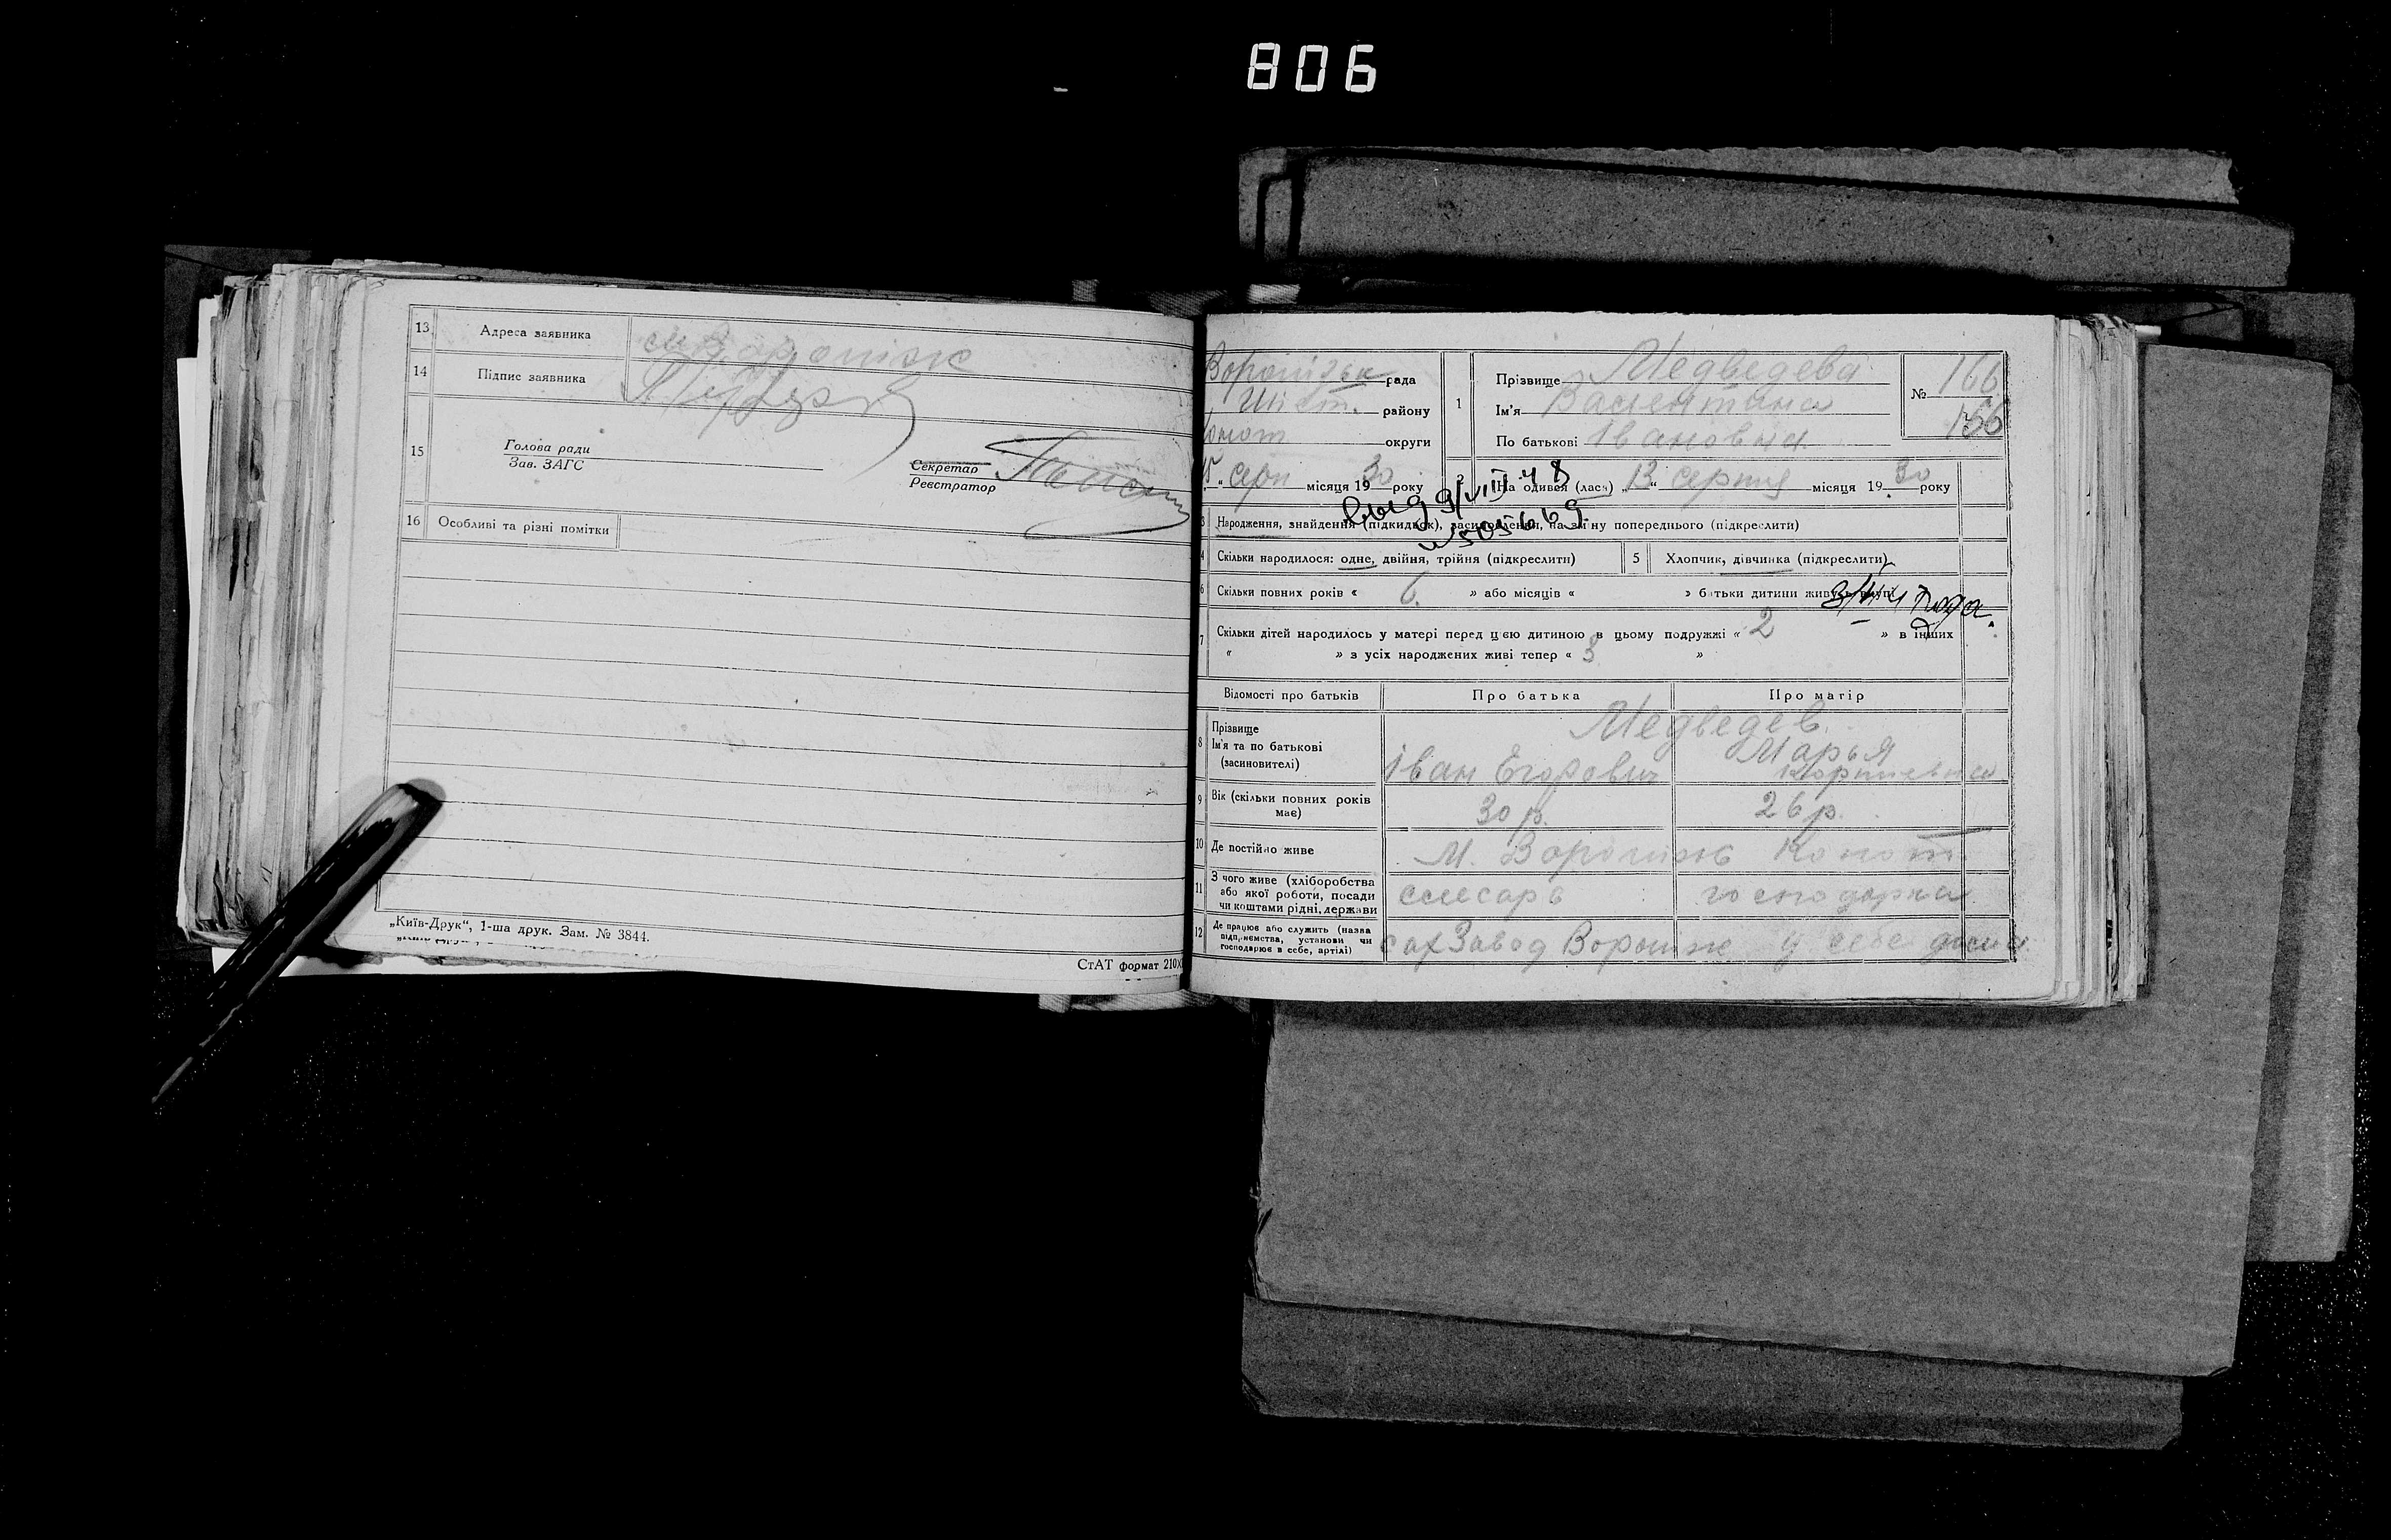 806
13 Адреса заявника
14 Підпис заявника
15 Голова ради
Зав. ЗАГС
Секретар
Реєстратор
16 Особливі та різні помітки
„Київ-Друк“, 1-ша друк. Зам. № 3844.
СтАТ формат 210×
рада
Шост. району
округи
1 Прізвище Медведева
Ім'я Валентина
По батькові Івановна
№ 166
166
серп місяця 1930 року
2 На одився (лася) „13“ серпня місяця 1930 року
выд 9/VIII 48
3 Народження, знайдення (підкидьок), засиновлення, на зміну попереднього (підкреслити)
4 Скільки народилося: одне, двійня, трійня (підкреслити)
5 Хлопчик, дівчинка (підкреслити)
6 Скільки повних років « 6. » або місяців « » батьки дитини живуть вкупі
7 Скільки дітей народилось у матері перед цією дитиною в цьому подружжі « 2 » в інших
« » з усіх народжених живі тепер « 3 »
Відомості про батьків Про батька Про матір
8 Прізвище
Ім'я та по батькові
(засиновителі)
Медведев.
Іван Егорович
Марья
9 Вік (скільки повних років має) 30 р. 26 р.
10 Де постійно живе М. Вороніж Конот
11 З чого живе (хліборобства
або якої роботи, посади
чи коштами рідні, держави
слесарь господарка
12 Де працює або служить (назва
підприємства, установи чи
господарює в себе, артілі)
сахЗавод Вороніж у себе дома